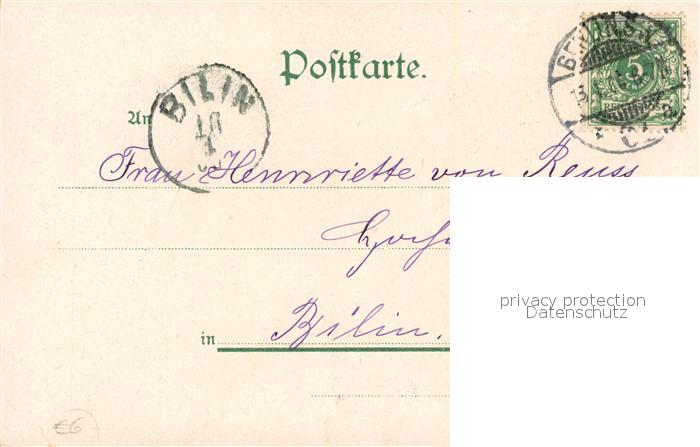 Postkarte.
An
BILIN
5
REICHSPOST
Frau Henrriette von Reuss
Bilin.
in
privacy protection
Datenschutz
€6